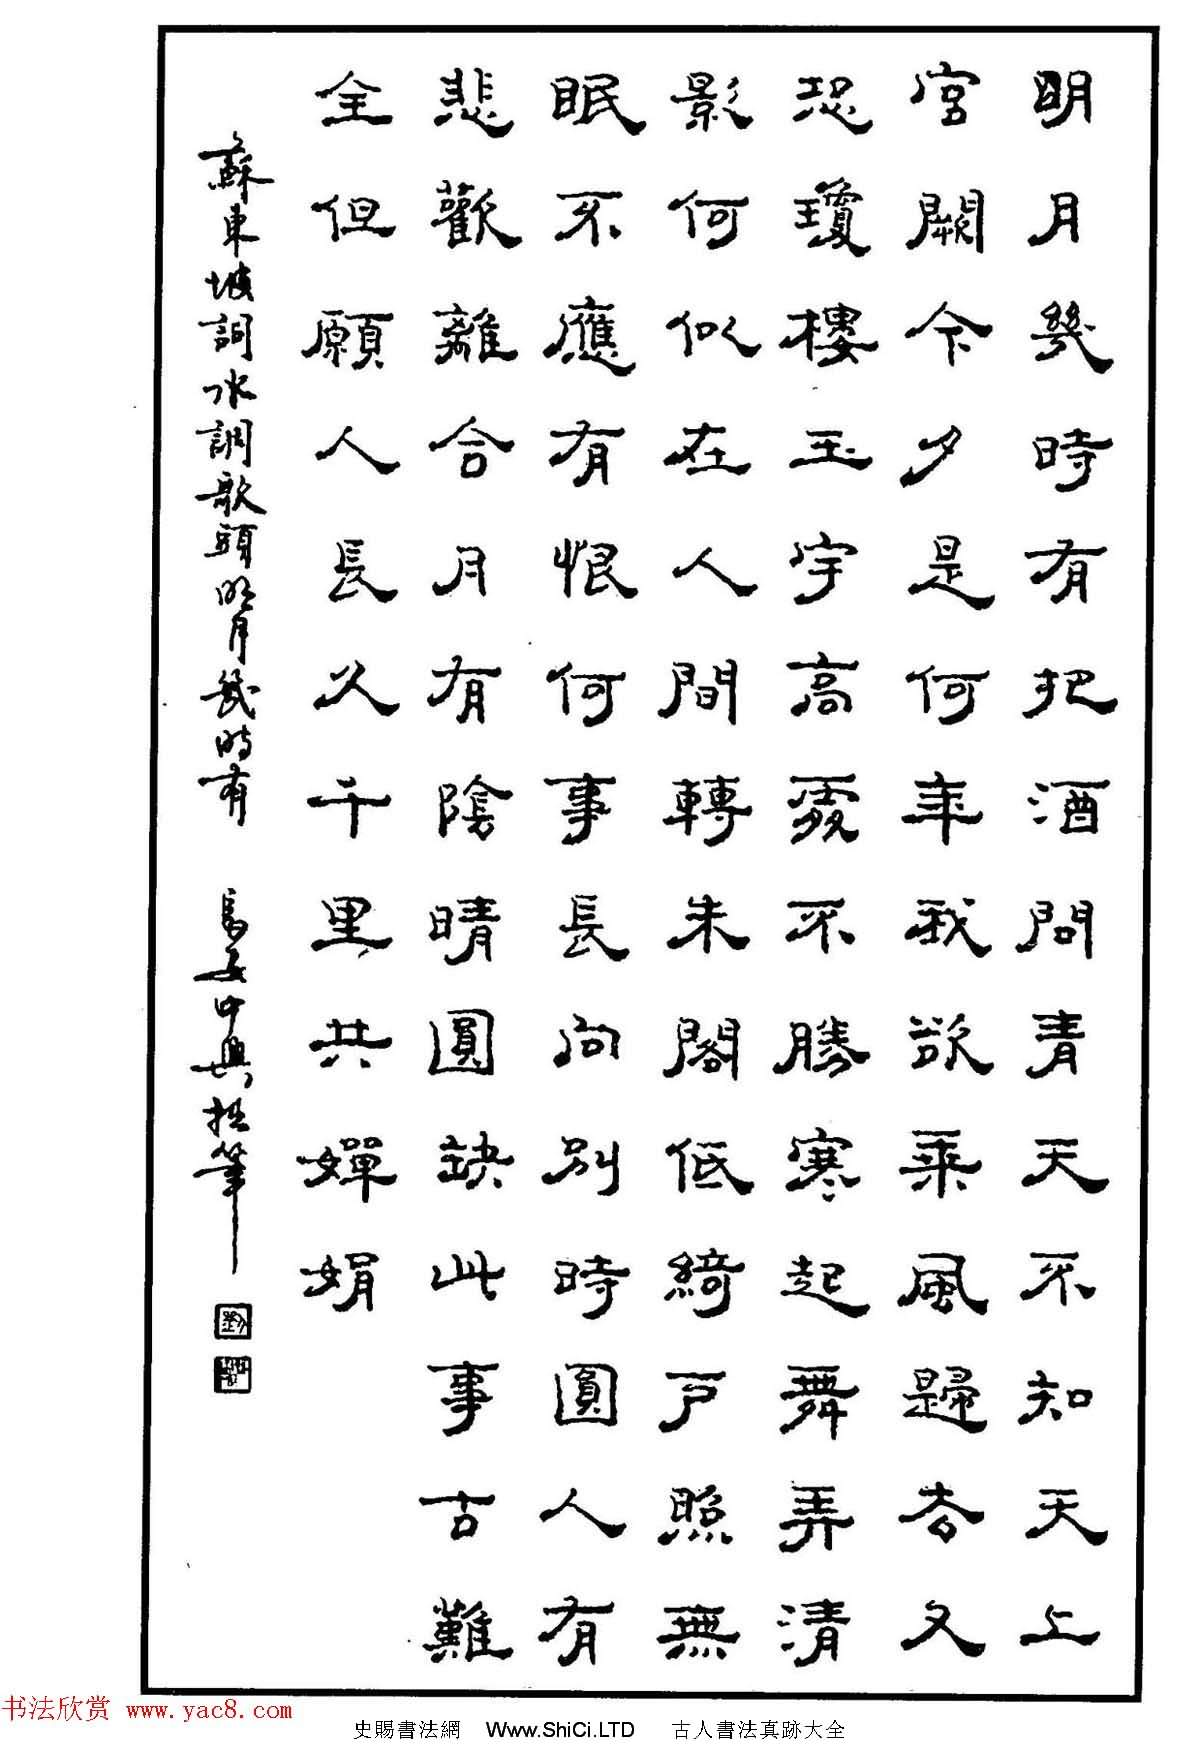 明月幾時有把酒問青天不知天上
宮闕今夕是何年我欲乘風歸去又
恐瓊樓玉宇高處不勝寒起舞弄清
影何似在人間轉朱閣低綺戶照無
眠不應有恨何事長向別時圓人有
悲歡離合月有陰晴圓缺此事古難
全但願人長久千里共嬋娟
蘇東坡詞水調歌頭明月幾時有 長安中興拙筆
书法欣赏 www.yac8.com
史賜書法網 Www.ShiCi.LTD 古人書法真跡大全